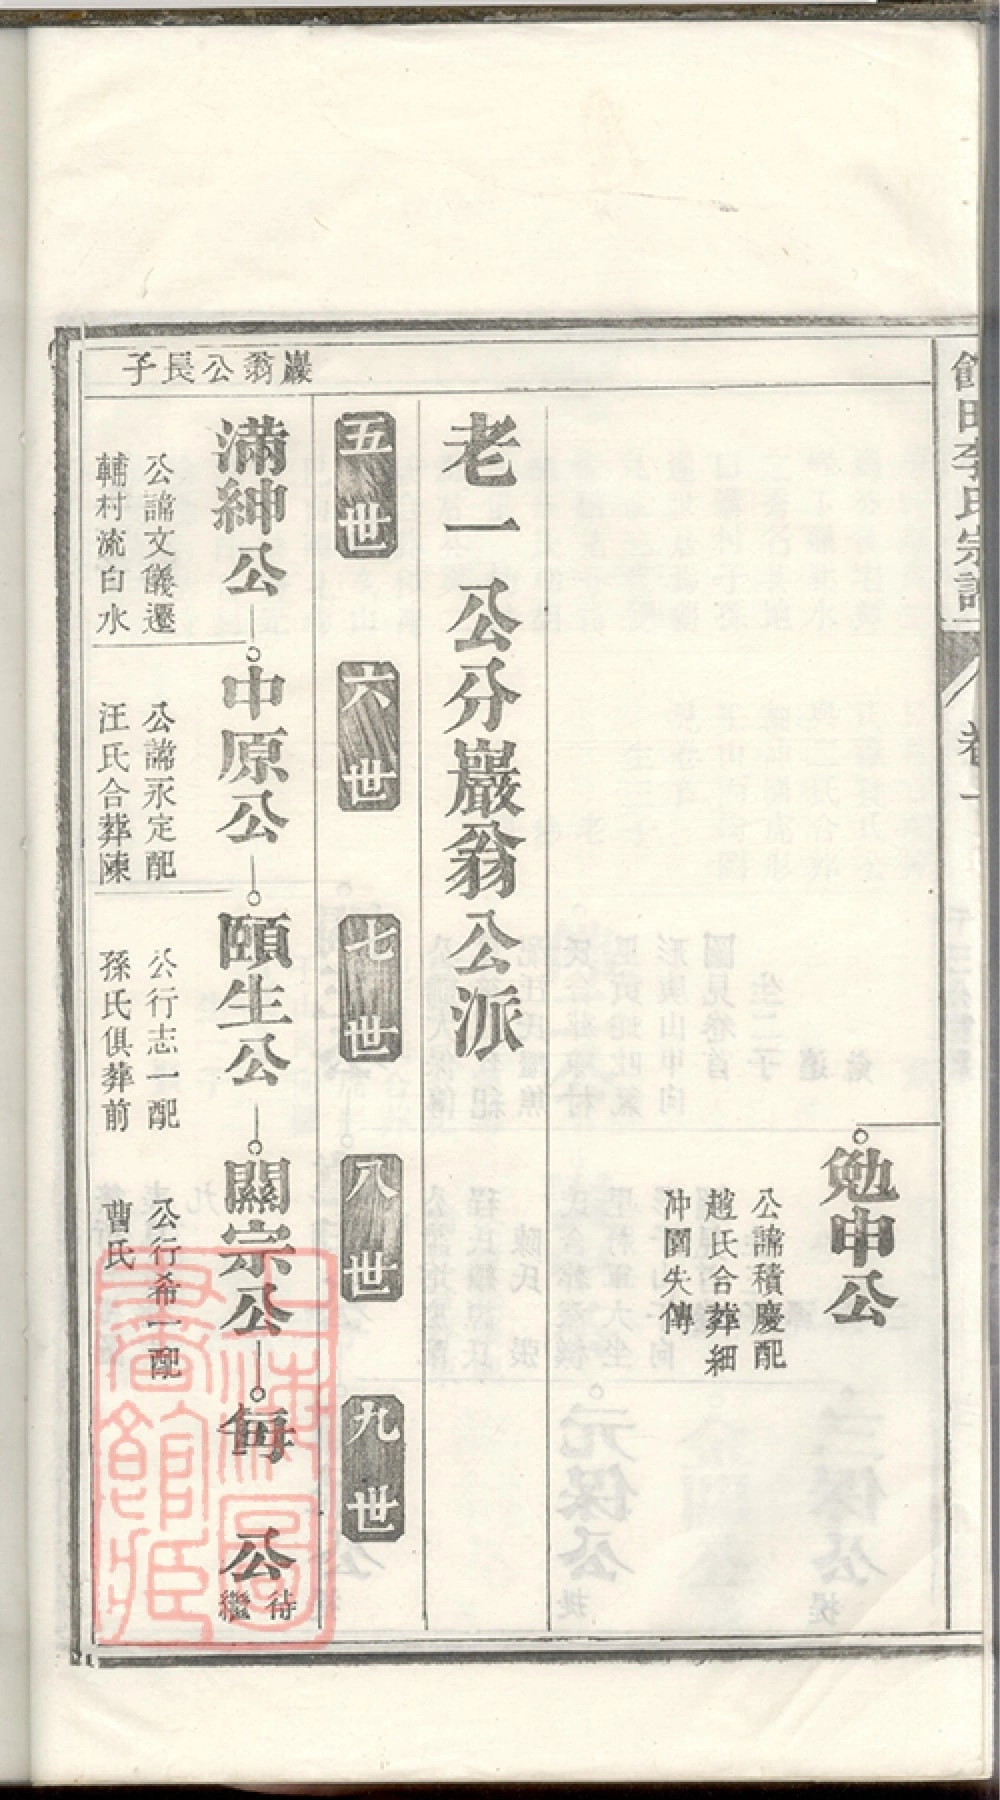 李氏宗譜
卷一
勉申公
公諱積慶配
趙氏合葬細
冲園失傳
老一公分巖翁公派
五世
六世
七世
八世
九世
巖翁公長子
滿紳公
公諱文儀遷
輔村流白水
中原公
公諱永定配
汪氏合葬陳
頤生公
公行志一配
孫氏俱葬前
關宗公
公行希一配
曹氏
每公
待
繼
上海圖書館藏